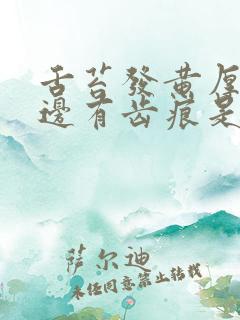 舌苔發黄厚
邊有齿痕是
萨尔迪
未经同意禁止转载